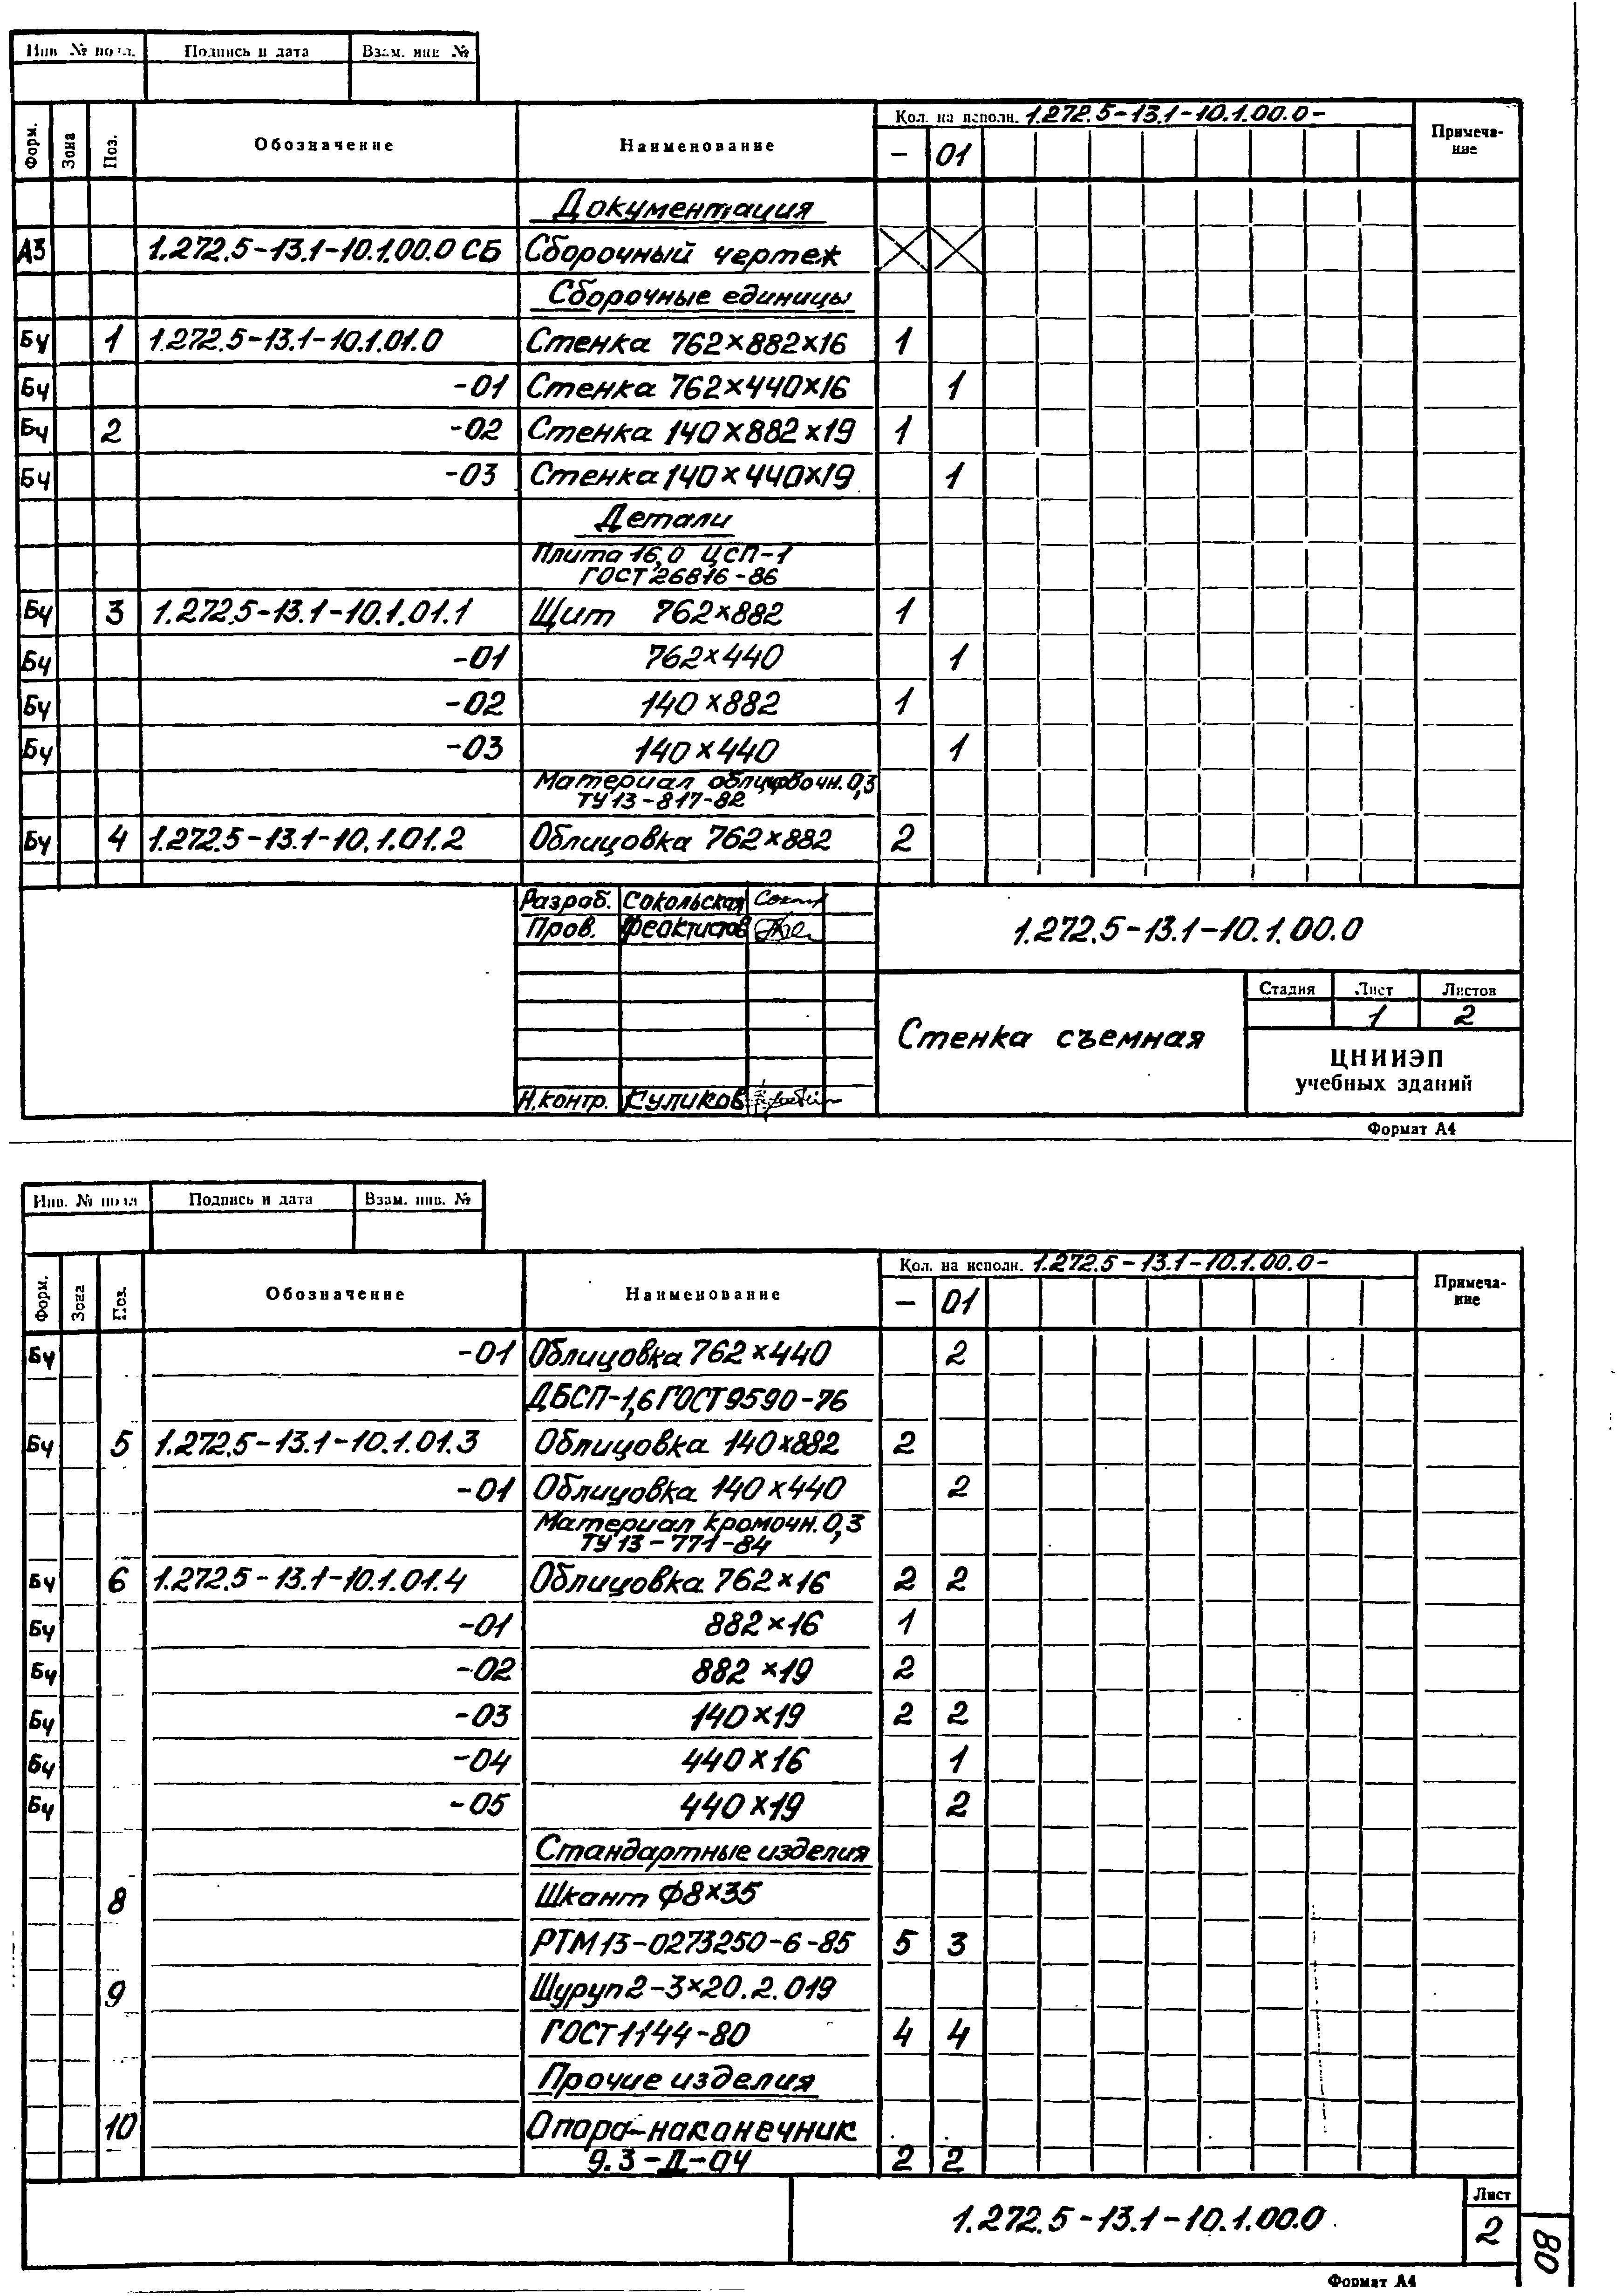 Инв № подл. Подпись и дата Взам. инв №
Форм. Зона Поз. Обозначение Наименование Кол. на исполн. 1.272.5-13.1-10.1.00.0- Примеча-
ние
- 01
Документация
А3 1.272.5-13.1-10.1.00.0 СБ Сборочный чертеж
Сборочные единицы
БЧ 1 1.272.5-13.1-10.1.01.0 Стенка 762×882×16 1
БЧ -01 Стенка 762×440×16 1
БЧ 2 -02 Стенка 140×882×19 1
БЧ -03 Стенка 140×440×19 1
Детали
Плита 16,0 ЦСП-1
ГОСТ 26816-86
БЧ 3 1.272.5-13.1-10.1.01.1 Щит 762×882 1
БЧ -01 762×440 1
БЧ -02 140×882 1
БЧ -03 140×440 1
Материал облицовочн. 0,3
ТУ 13-817-82
БЧ 4 1.272.5-13.1-10.1.01.2 Облицовка 762×882 2
Разраб. Сокольская
Пров. Феоктистов
Н.контр. Куликов
1.272.5-13.1-10.1.00.0
Стенка съемная
Стадия Лист Листов
1 2
ЦНИИЭП
учебных зданий
Формат А4
Инв. № подл Подпись и дата Взам. инв. №
Форм. Зона Поз. Обозначение Наименование Кол. на исполн. 1.272.5-13.1-10.1.00.0- Примеча-
ние
- 01
БЧ -01 Облицовка 762×440 2
ДБСП-1,6 ГОСТ 9590-76
БЧ 5 1.272.5-13.1-10.1.01.3 Облицовка 140×882 2
-01 Облицовка 140×440 2
Материал кромочн. 0,3
ТУ 13-771-84
БЧ 6 1.272.5-13.1-10.1.01.4 Облицовка 762×16 2 2
БЧ -01 882×16 1
БЧ -02 882×19 2
БЧ -03 140×19 2 2
БЧ -04 440×16 1
БЧ -05 440×19 2
Стандартные изделия
8 Шкант ф8×35
РТМ 13-0273250-6-85 5 3
9 Шуруп 2-3×20.2.019
ГОСТ 1144-80 4 4
Прочие изделия
10 Опора-наконечник
9.3-Д-04 2 2
1.272.5-13.1-10.1.00.0
Лист
2
80
Формат А4